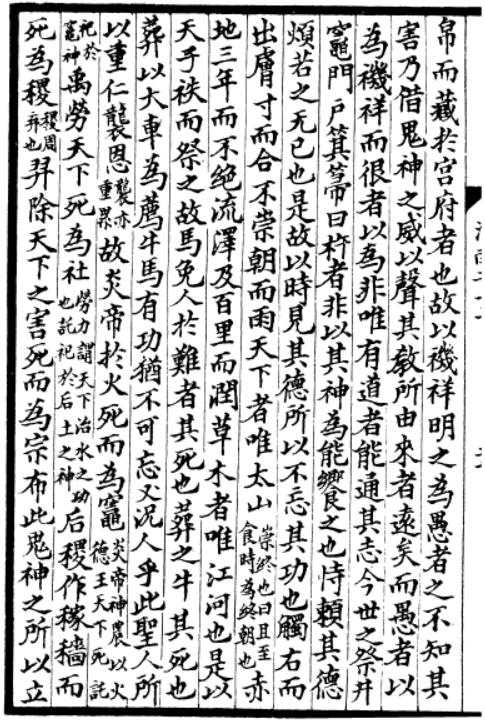 帛而藏於宫府者也故以禨祥明之為愚者之不知其
害乃借鬼神之威以聲其教所由來者遠矣而愚者以
為禨祥而很者以為非唯有道者能通其志今世之祭井
竈門户箕箒曰杵者非以其神為能饗之也恃賴其德
煩若之无已也是故以時見其德所以不忘其功也觸右而
出膚寸而合不崇朝而雨天下者唯太山崇終也日旦至食時為終朝也赤
地三年而不絕流澤及百里而潤草木者唯江河也是以
天子袟而祭之故馬免人於難者其死也葬之牛其死也
葬以大車為薦牛馬有功猶不可忘又况人乎此聖人所
以重仁襲恩襲亦重累故炎帝於火死而為竈炎帝神農以火德王天下死託
祀於竈神禹勞天下死為社勞力謂天下治水之功也託祀於后土之神后稷作稼穡而
死為稷稷周弃也羿除天下之害死而為宗布此鬼神之所以立